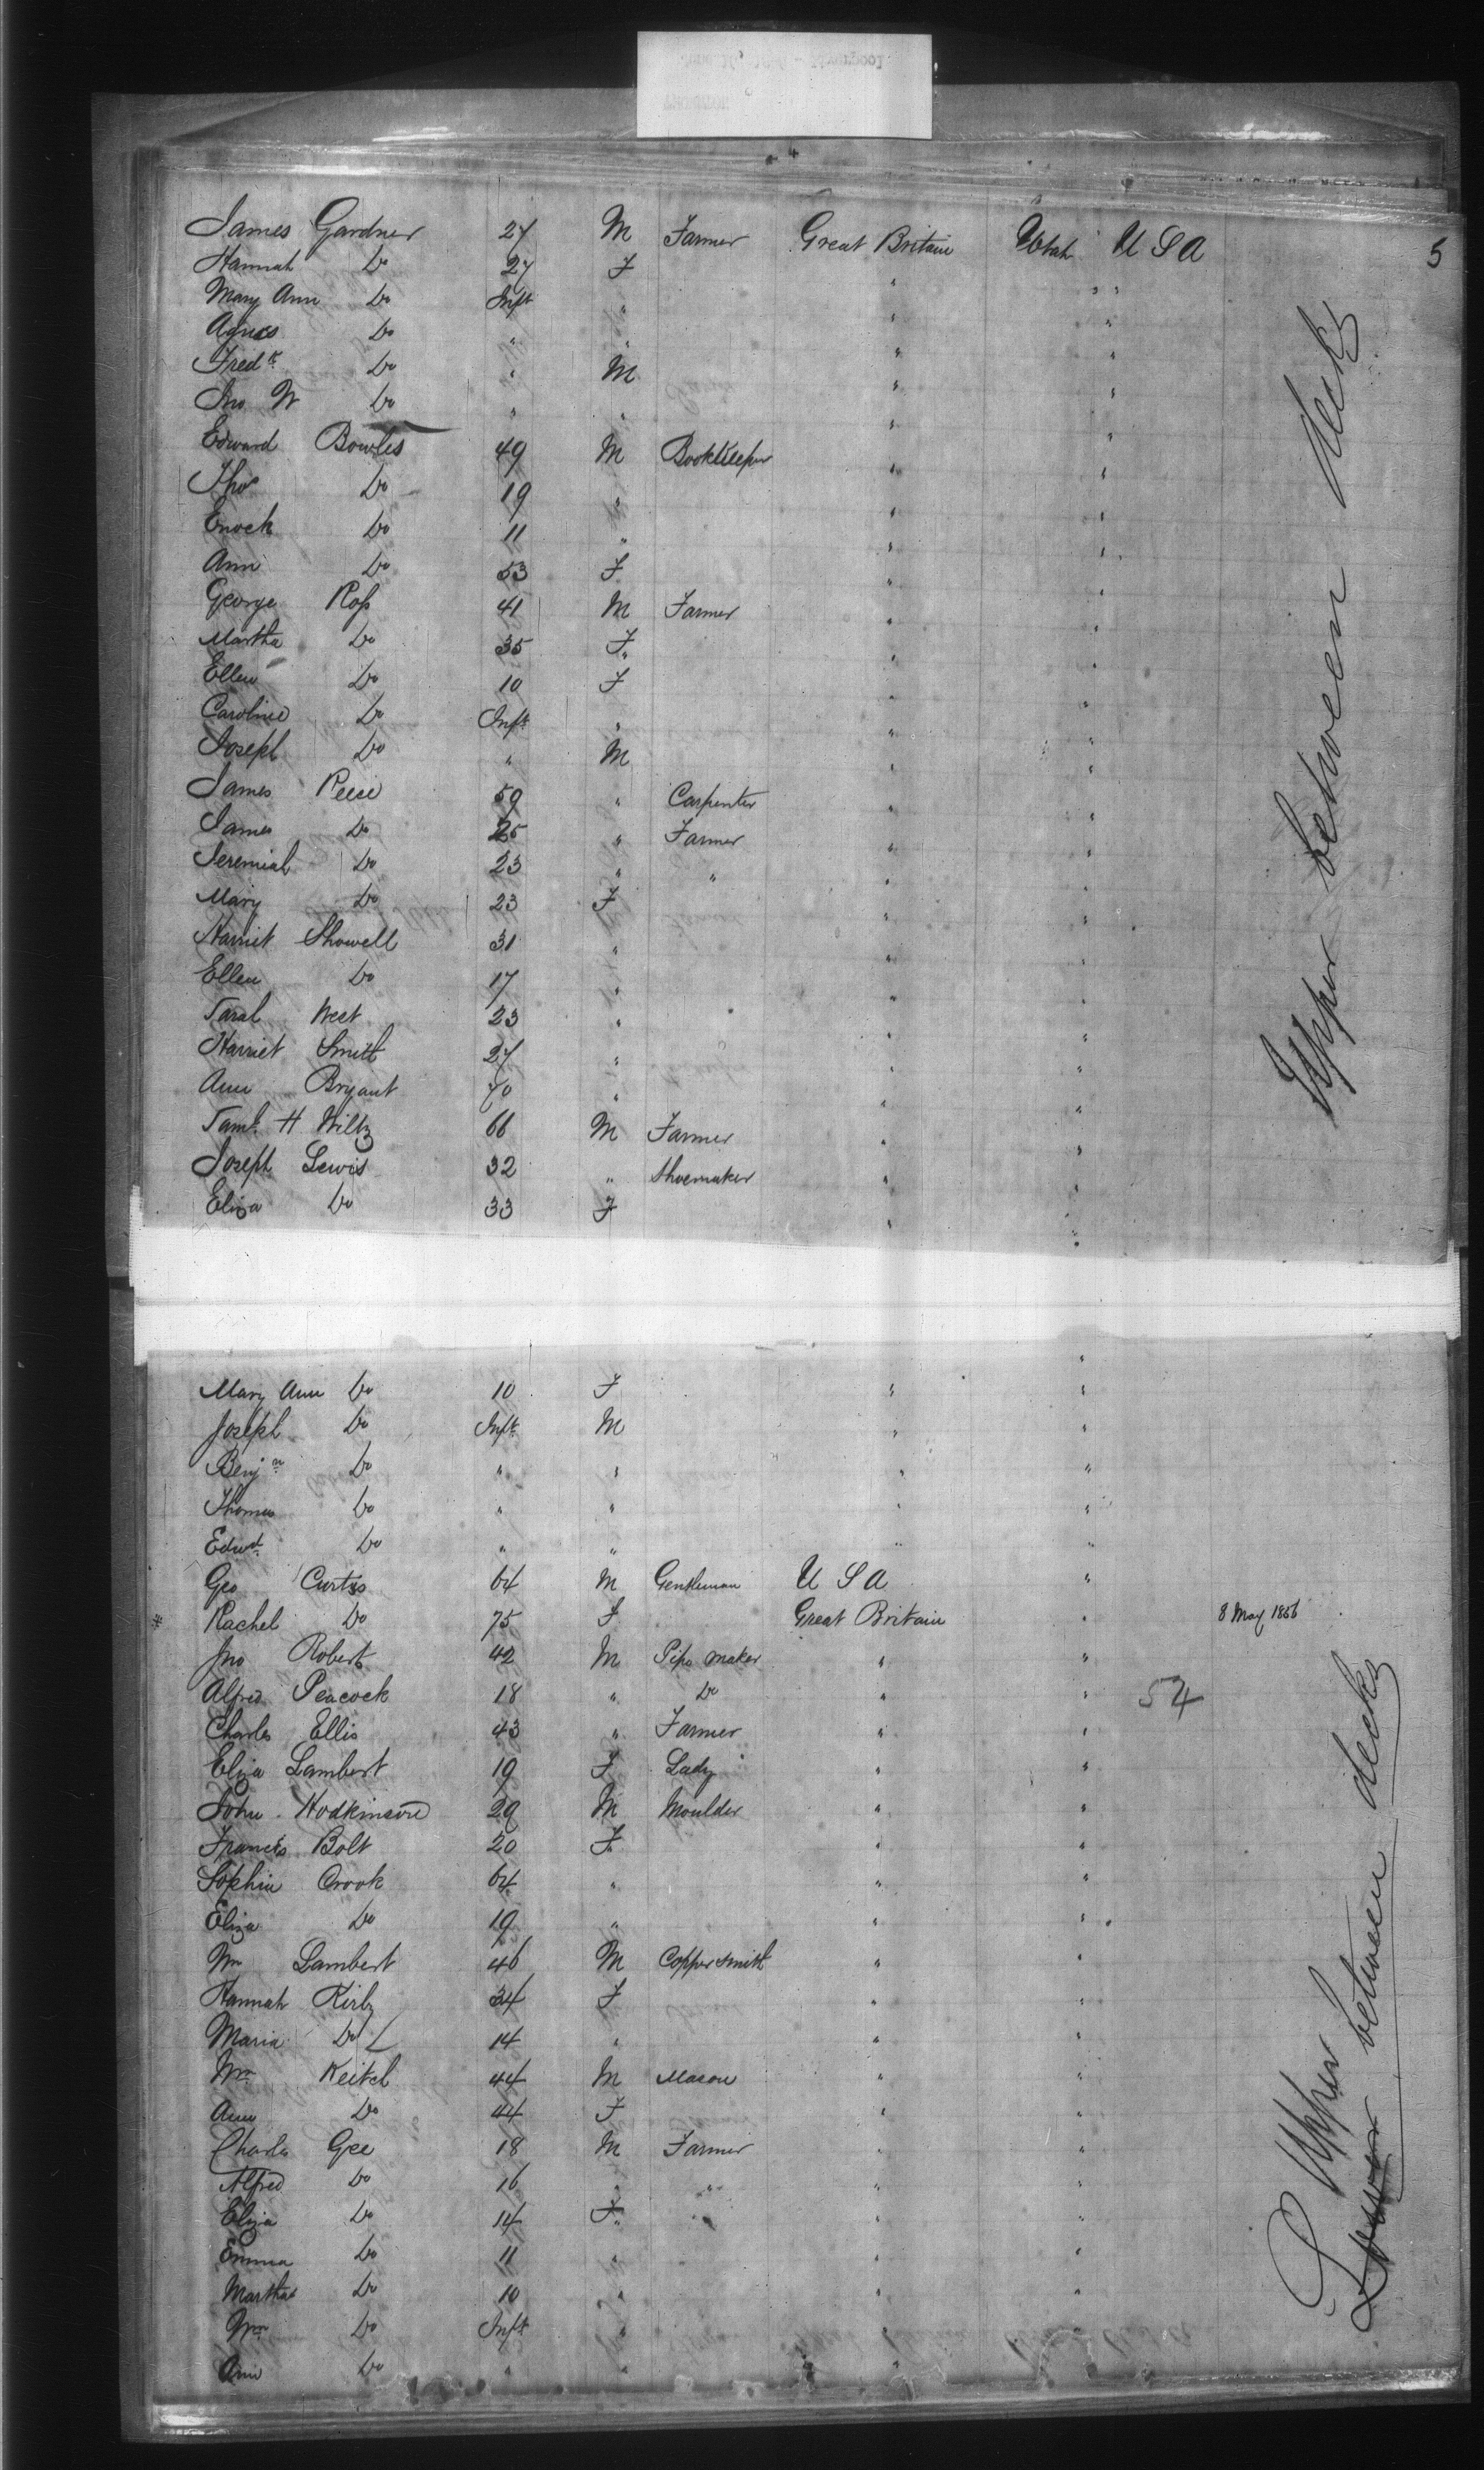 4
5
James Gardner 27 M Farmer Great Britain Utah U S A
Hannah Do 27 F " "
Mary Ann Do Inft " " "
Agnes Do " " "
Fredk Do " M " "
Jno W Do " " " "
Edward Bowles 49 M Bookkeeper " "
Thos Do 19 " " "
Enoch Do 11 " " "
Ann Do 53 F " "
George Ross 41 M Farmer " "
Martha Do 35 F " "
Ellen Do 10 F " "
Caroline Do Inft " " "
Joseph Do " M " "
James Reece 59 " Carpenter " "
James Do 25 " Farmer " "
Jeremiah Do 23 " " " "
Mary Do 23 F " "
Harriet Showell 31 " " "
Ellen Do 17 " " "
Sarah West 23 " " "
Harriet Smith 27 " " "
Ann Bryant 70 " " "
Saml H 66 M Farmer " "
Joseph Lewis 32 " Shoemaker " "
Eliza Do 33 F " "
Upper between decks
Mary Ann Do 10 F " "
Joseph Do Inft M " "
Benjn Do " " " "
Thomas Do " " " "
Edwd Do " " " "
Geo Curtis 64 M Gentleman U S A "
Rachel Do 75 F Great Britain " 8 May 1856
Jno Roberts 42 M Pipe maker " "
Alfred Peacock 18 " Do " " 54
Charles Ellis 43 " Farmer " "
Eliza Lambert 19 F Lady " "
John Hodkinson 29 M Moulder " "
Francis Bolt 20 F " "
Sophia Crook 64 " " "
Eliza Do 19 " " "
Wm Lambert 46 M Coppersmith " "
Hannah Kirby 34 F " "
Maria Do 14 " " "
Wm Keitch 44 M Mason " "
Ann Do 44 F " "
Charles Gee 18 M Farmer " "
Alfred Do 16 " " " "
Eliza Do 14 F " "
Emma Do 11 " " "
Martha Do 10 " " "
Wm Do Inft "
Ann Do " " "
Upper
Lower between decks